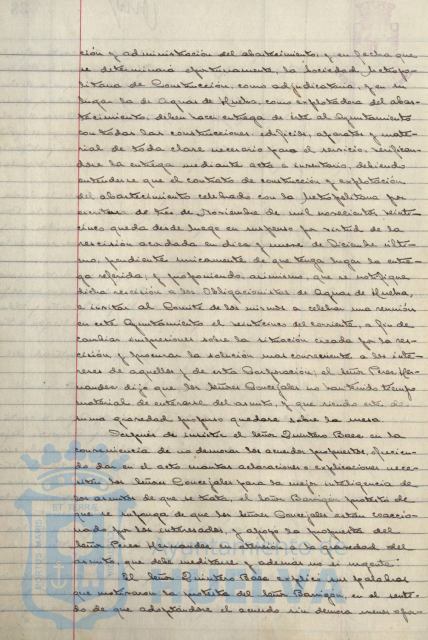 ción y administración del abastecimiento, y en fecha que
se determinará oportunamente, la Sociedad Metropo-
litana de Construcción, como adjudicataria, y en su
lugar la de Aguas de Huelva, como explotadora del abas-
tecimiento, deben hacer entrega de éste al Ayuntamiento
con todas las construcciones, edificios, aparatos y mate-
rial de toda clase necesario para el servicio, verifican-
dose la entrega mediante acta e inventario, debiendo
entenderse que el contrato de construcción y explotación
del abastecimiento celebrado con la Metropolitana por
escritura de tres de Noviembre de mil novecientos veinti-
cinco queda desde luego en suspenso por virtud de la
rescisión acordada en diez y nueve de Diciembre últi-
mo, pendiente unicamente de que tenga lugar la entre-
ga referida; y proponiendo, asimismo, que se notifique
dicha rescisión a los Obligacionistas de Aguas de Huelva,
e invitar al Comité de los mismos a celebrar una reunión
en este Ayuntamiento el veintiuno del corriente, a fin de
cambiar impresiones sobre la situación creada por la res-
cisión y procurar la solución mas conveniente a los inte-
reses de aquellos y de esta Corporación, el señor Perez Her-
nandez dijo que los señores Concejales no han tenido tiempo
material de enterarse del asunto, y que siendo este de
suma gravedad propuso quedase sobre la mesa.
Después de insistir el señor Quintero Baez en la
conveniencia de no demorar los acuerdos propuestos, ofrecien-
do dar en el acto cuantas aclaraciones o explicaciones nece-
siten los señores Concejales para la mejor inteligencia de
los asuntos de que se trata, el señor Barrigón protestó de
que se suponga que los señores Concejales estén coaccio-
nado por los interesados, y apoyó la propuesta del
señor Perez Hernandez en atención a la gravedad del
asunto, que debe meditarse y además no es urgente.
El señor Quintero Baez explicó sus palabras
que motivaron la protesta del señor Barrigón, en el senti-
do de que adoptándose el acuerdo sin demora menos opor-
Ayuntamiento de
HUELVA